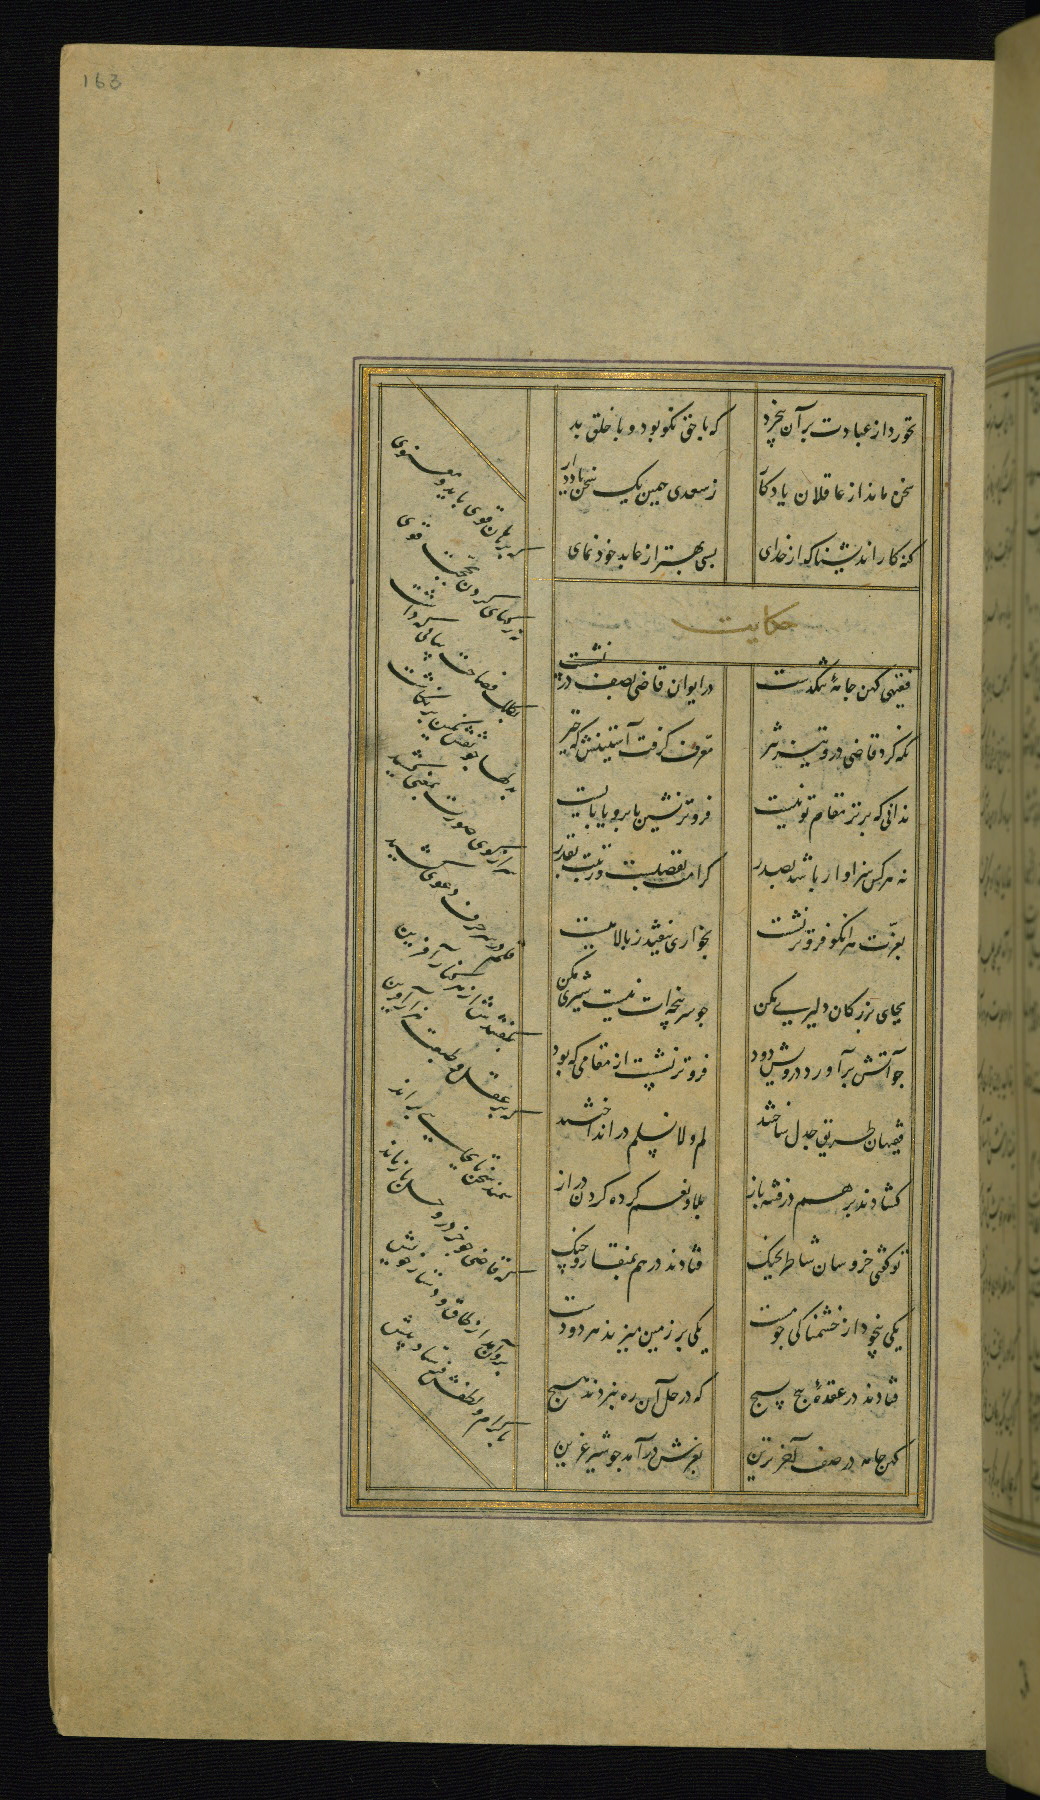 163
نخورد از عبادت بر آن بیخرد
که با حق نکو بود و با خلق بد
سخن ماند از عاقلان یادکار
ز سعدی همین یک سخن یاد دار
کنه کار اندیشناک از خدای
بسی بهتر از عابد خود نمای
حکایت
فقیهی کهن جامهٔ تنکدست
در ایوان قاضی بصف در نشست
نکه کرد قاضی درو تیز تیز
معرف کرفت آستینش که خیز
ندانی که برتر مقام تو نیست
فروتر نشین یا برو یا بایست
نه هر کس سزاوار باشد بصدر
کرامت بفضلست و رتبت بقدر
بعزت هر انکو فروتر نشست
بخواری نیفتد ز بالا بپست
بجای بزرکان دلیری مکن
چو سر پنجه ات نیست شیری مکن
چو آتش برآورد درویش دود
فروتر نشست از مقامی که بود
فقیهان طریق جدل ساختند
لم و لا نسلم در انداختند
کشادند بر هم در فتنه باز
بلا و نعم کرده کردن دراز
تو کفتی خروسان شاطر بجنک
فتادند در هم بمنقار و چنک
یکی بیخود از خشمناکی چو مست
یکی بر زمین میزند هر دو دست
فتادند در عقدهٔ پیچ پیچ
که در حل آن ره نبردند هیچ
کهن جامه در صف آخر ترین
بغرش درآمد چو شیر عرین
که برهان قوی باید و معنوی
نه رکهای کردن بحجت قوی
بکلک فصاحت بیانی که داشت
بدلها چو نقش نکین بر نکاشت
سر از کوی صورت بمعنی کشید
قلم در سر حرف دعوی کشید
بکفتندش از هر کنار آفرین
که بر عقل و طبعت هزار آفرین
سمند سخن تا بجایی براند
که قاضی چو خر در وحل باز ماند
برون آمد از طاق و دستار خویش
باکرام و لطفش فرستاد پیش